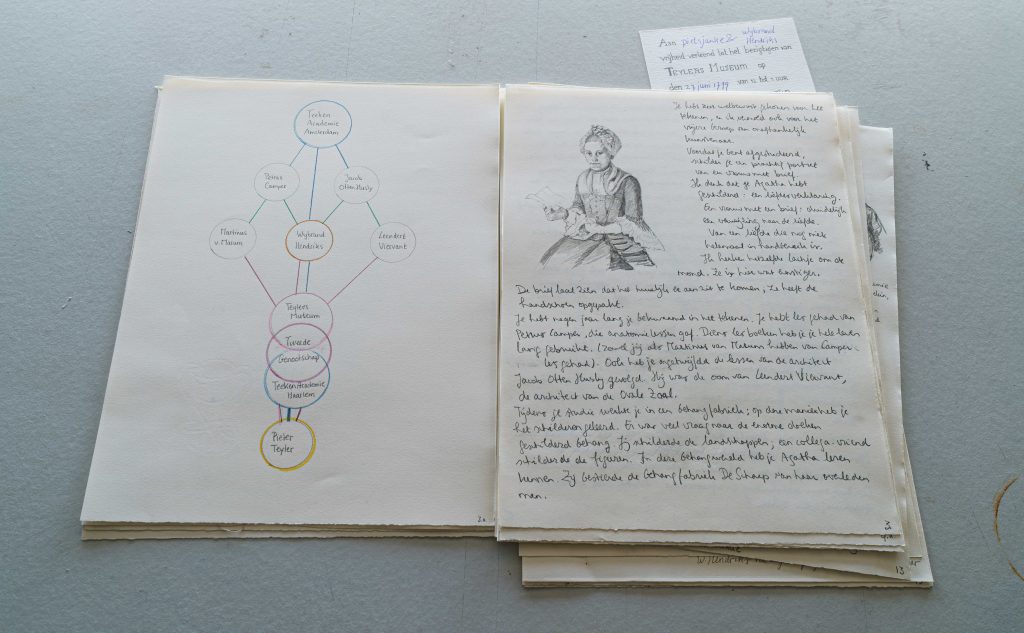 Teeken
Academie
Amsterdam
Petrus
Camper
Jacob
Otten Husly
Martinus
v. Marum
Wijbrand
Hendriks
Leendert
Viervant
Teylers
Museum
Tweede
Genootschap
TeekenAcademie
Haarlem
Pieter
Teyler
2.a
Aan pietsjanke Z wijbrand
Hendriks
vrijheid verleend tot het bezigtigen van
TEYLERS MUSEUM op
den 27 juni 1799 van 12 tot 2 uur
Je hebt zeer welbewust gekozen voor het
tekenen, en ik vervolg
vrije beroep van onafhankelijk
kunstenaar.
Voordat je bent afgestudeerd,
schilder je een prachtig portret
van een vrouw met brief.
Ik denk dat je Agatha hebt
geschilderd: een liefdesverklaring
Een vrouw met een brief: duidelijk
een verwijzing naar de liefde.
Van een liefde die nog niet
helemaal in
Ik herken hetzelfde lachje om de
mond. Ze is hier wat ernstiger.
De brief laat zien dat het huwelijk er aan zit te komen, ze heeft de
handschoen opgepakt.
Je hebt negen jaar lang je bekwaamd in het tekenen. Je hebt les gehad van
Petrus Camper, die anatomielessen gaf. Diens les boeken heb je je hele leven
lang gebruikt. (zowel jij als Martinus van Marum hebben van Camper
les gehad). Ook heb je ongetwijfeld de lessen van de architect
Jacob Otten Husly gevolgd. Hij was de oom van Leendert Viervant,
de architect van de Ovale Zaal.
Tijdens je studie werkte je in een behangfabriek; op deze manier heb je
het schilderen geleerd. Er was veel vraag naar de enorme doeken
geschilderd behang. Jij schilderde de landschappen; een collega-vriend
schilderde de figuren. In deze behangwereld heb je Agatha leren
kennen. Zij bestierde de behangfabriek De Schaep van haar overleden
man.
3
13